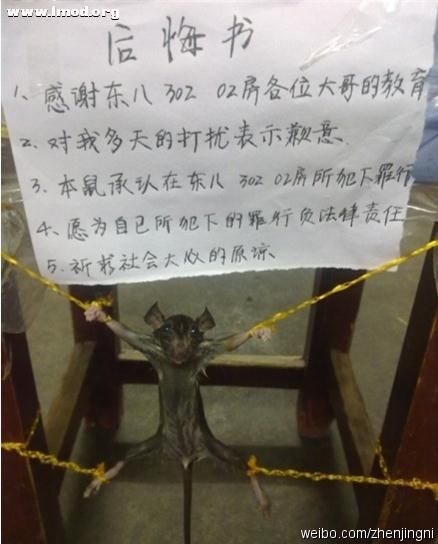 www.lmod.org
后悔书
1、感谢东八302 02房各位大哥的教育
2、对我多天的打扰表示歉意.
3、本鼠承认在东八302 02房所犯下罪行
4、愿为自己所犯下的罪行负法律责任
5、祈求社会大众的原谅.
weibo.com/zhenjingni